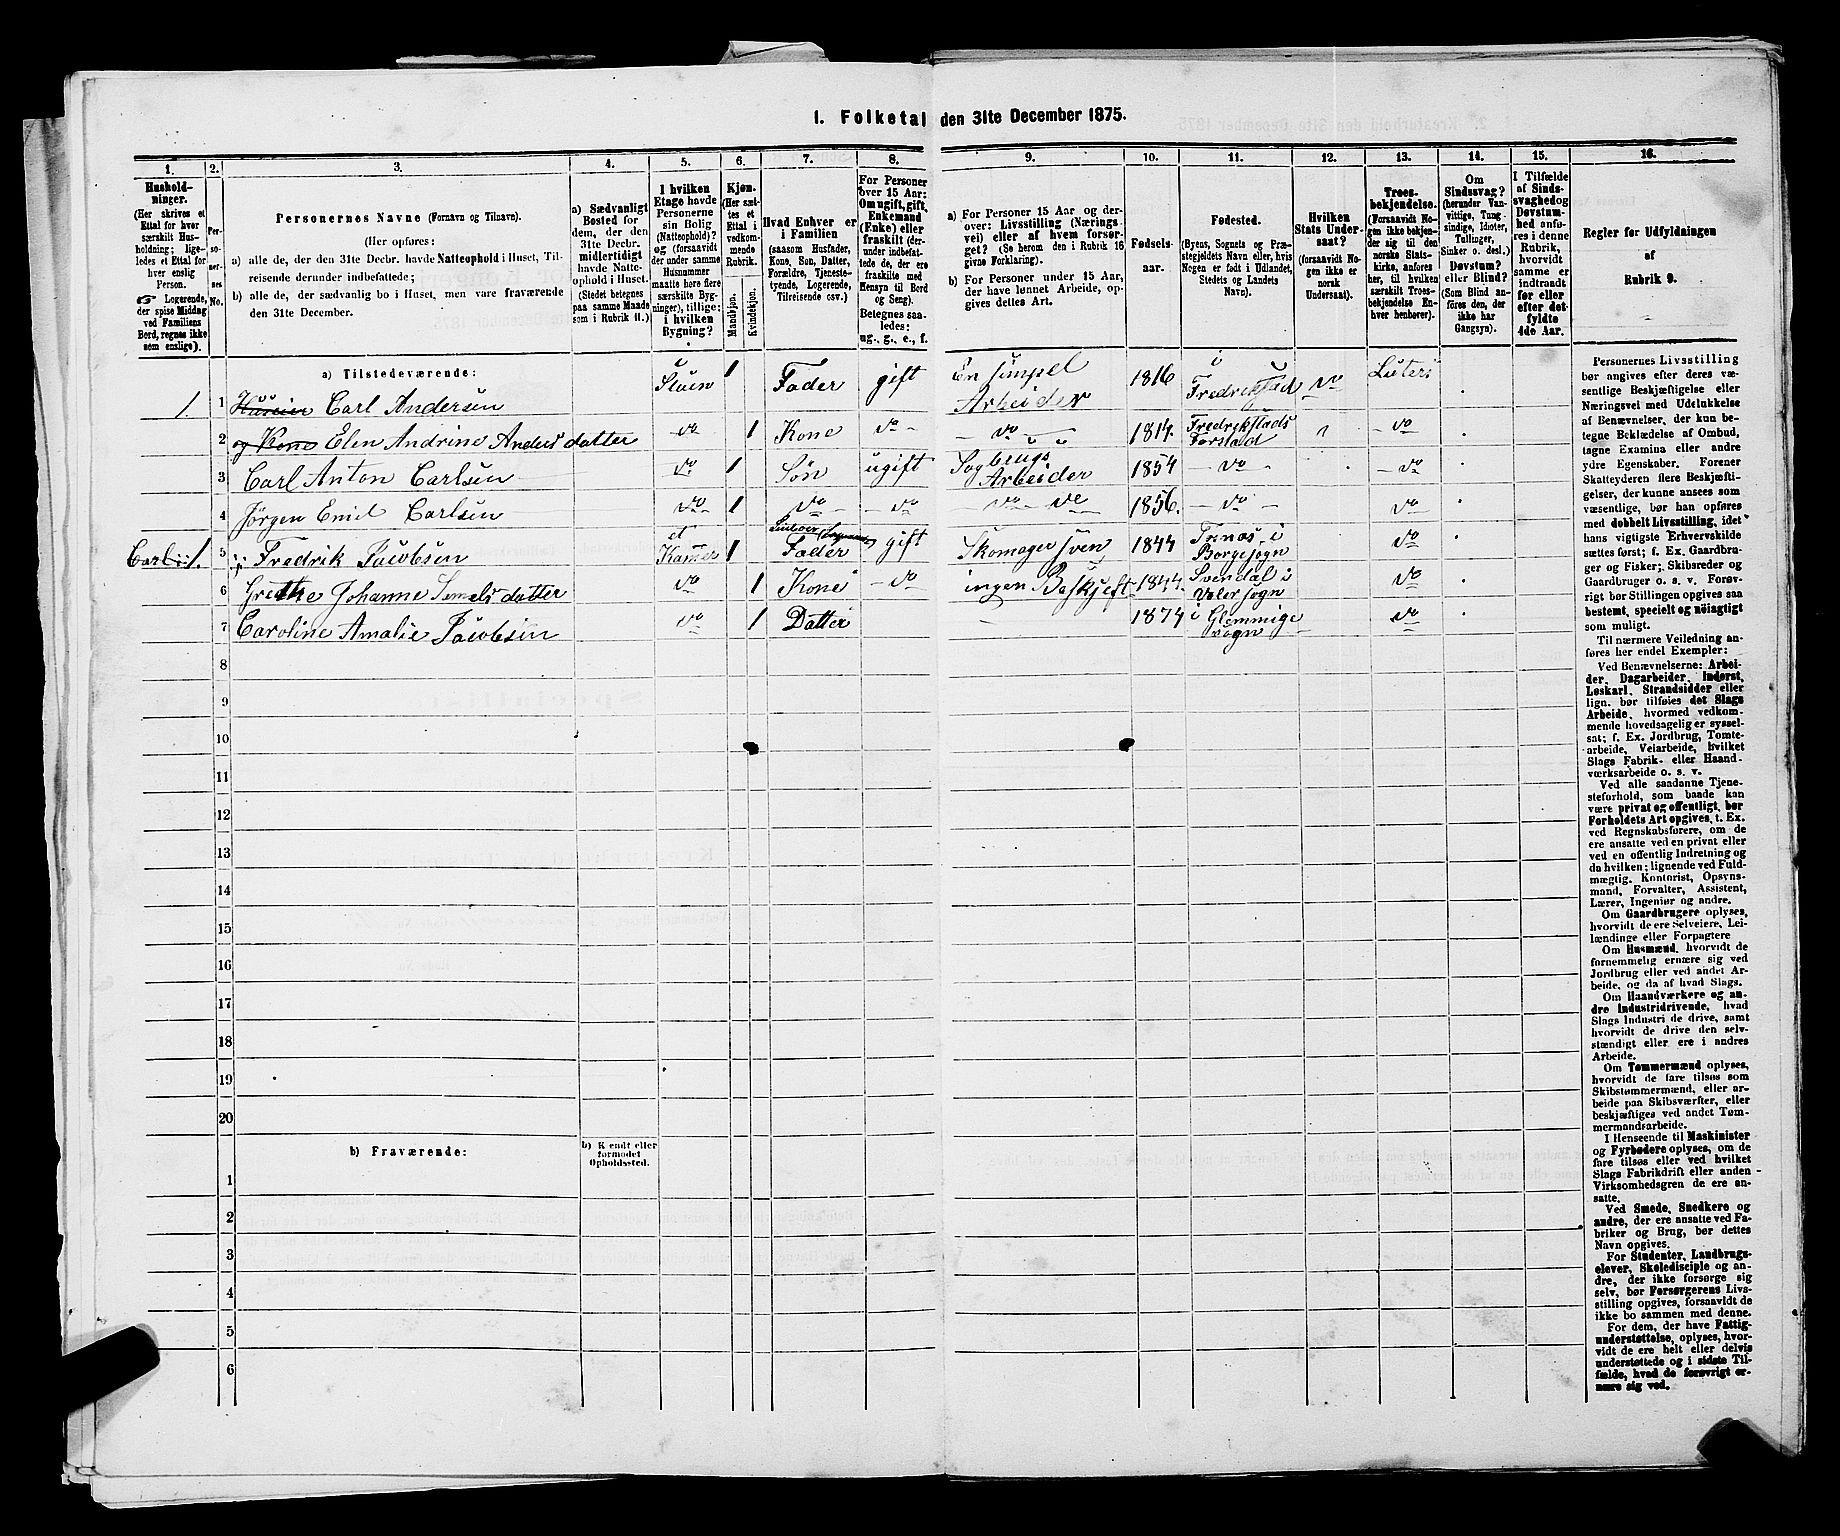 1. Folketal den 31te December 1875.
1.
2.
3.
4.
5.
6.
7.
8.
9.
10.
11.
12.
13.
14.
15.
16.
Hushold-
ninger.
(Her skrives et
Ettal for hver
særskilt Hus-
holdning; lige-
ledes et Ettal for
hver enslig
Person.
☞ Logerende,
der spise Middag
ved Familiens
Bord, regnes ikke
som enslige).
Per-
so-
ner-
nes
No.
Personernes Navne (Fornavn og Tilnavn).
(Her opføres:
a) alle de, der den 31te Decbr. havde Natteophold i Huset, Til-
reisende derunder indbefattede;
b) alle de, der sædvanlig bo i Huset, men vare fraværende
den 31te December.
a) Sædvanligt
Bosted for
dem, der den
31te Decbr.
midlertidigt
havde Natte-
ophold i Huset.
(Stedet betegnes
paa samme Maade
som i Rubrik 11.)
I hvilken
Etage havde
Personerne
sin Bolig
(Natteophold)?
og (forsaavidt
der under samme
Husnummer
maatte høre flere
særskilte Byg-
ninger), tillige:
i hvilken
Bygning?
Kjøn.
(Her sæt-
tes et
Ettal i
vedkom-
mende
Rubrik.
Mandkjøn.
Kvindekjøn.
Hvad Enhver er
i Familien
(saasom Husfader,
Kone, Søn, Datter,
Forældre, Tjeneste-
tyende, Logerende,
Tilreisende osv.)
For Personer
over 15 Aar:
Om ugift, gift,
Enkemand
(Enke) eller
fraskilt (der-
under indbefat-
tede de, der ere
fraskilte med
Hensyn til Bord
og Seng).
Betegnes saa-
ledes:
ug., g., e., f.
a) For Personer 15 Aar og der-
over: Livsstilling (Nærings-
vei) eller af hvem forsør-
get? (Se herom den i Rubrik 16
givne Forklaring).
b) For Personer under 15 Aar,
der have lønnet Arbeide, op-
gives dettes Art.
Fødsels-
aar.
Fødested.
(Byens, Sognets og Præ-
stegjeldets Navn eller, hvis
Nogen er født i Udlandet,
Stedets og Landets
Navn).
Hvilken
Stats Under-
saat?
(forsaavidt No-
gen ikke er
norsk
Undersaat).
Troes-
bekjendelse.
(Forsaavidt No-
gen ikke bekjen-
der sig til den
norske Stats-
kirke, anføres
her, til hvilken
særskilt Troes-
bekjendelse En-
hver henhører).
Om
Sindssvag?
(herunder Van-
vittige, Tung-
sindige, Idioter,
Tullinger,
Sinker o. desl.)
Døvstum?
eller Blind?
(Som Blind an-
føres den, der
ikke har
Gangsyn).
I Tilfælde
af Sinds-
svaghed og
Døvstum-
hed anfø-
res i denne
Rubrik,
hvorvidt
samme er
indtraadt
før eller
efter det
fyldte
4de Aar.
Regler for Udfyldningen
af
Rubrik 9.
a) Tilstedeværende:
1. 1 Huseier Carl Andersen Stuen 1 Fader gift En simpel Arbeider 1816 i Fredrikstad do Luters
2 og Kone Elen Andrine Anders datter do 1 Kone do do 1814. Fredrikstads Forstad do
3 Carl Anton Carlsen do 1 Søn ugift Sagbrugs Arbeider 1854 do do
4 Jørgen Emil Carlsen do 1 do do do 1856. do do
Carl 1. 5 Fredrik Jacobsen et Kamer 1 Fader gift Skomager sven 1844 i Borgesogn do
6 Johanne datter do 1 Kone do ingen 1844. i Valer sogn do
7 Caroline Amalie Jacobsen do 1 Datter 1874 i Glemmige sogn do
8
9
10
11
12
13
14
15
16
17
18
19
20
b) Fraværende:
b) Kjendt eller
formodet
Opholdssted.
1
2
3
4
5
6
Personernes Livsstilling
bør angives efter deres væ-
sentlige Beskjæftigelse eller
Næringsvei med Udelukkelse
af Benævnelser, der kun be-
tegne Beklædelse af Ombud,
tagne Examina eller andre
ydre Egenskaber. Forener
Skatteyderen flere Beskjæfti-
gelser, der kunne ansees som
væsentlige, bør han opføres
med dobbelt Livsstilling, idet
hans vigtigste Erhvervskilde
sættes først; f. Ex. Gaardbru-
ger og Fisker; Skibsreder og
Gaardbruger o. s. v. Forøv-
rigt bør Stillingen opgives saa
bestemt, specielt og nöiagtigt
som muligt.
Til nærmere Veiledning an-
føres her endel Exempler:
Ved Benævnelserne: Arbei-
der, Dagarbeider, Inderst,
Løskarl, Strandsidder eller
lign. bør tilføies det Slags
Arbeide, hvormed vedkom-
mende hovedsagelig er syssel-
sat; f. Ex. Jordbrug, Tomte-
arbeide, Veiarbeide, hvilket
Slags Fabrik- eller Haand-
værksarbeide o. s. v.
Ved alle saadanne Tjene-
steforhold, som baade kan
være privat og offentligt, bør
Forholdets Art opgives, t. Ex.
ved Regnskabsførere, om de
ere ansatte ved en privat eller
ved en offentlig Indretning og
da hvilken; lignende ved Fuld-
mægtig, Kontorist, Opsyns-
mand, Forvalter, Assistent,
Lærer, Ingeniør og andre.
Om Gaardbrugere oplyses,
hvorvidt de ere Selveiere, Lei-
lændinge eller Forpagtere
Om Husmænd, hvorvidt de
fornemmelig ernære sig ved
Jordbrug eller ved andet Ar-
beide, og da af hvad Slags.
Om Haandværkere og an-
dre Industridrivende, hvad
Slags Industri de drive, samt
hvorvidt de drive den selv-
stændigt eller ere i andres
Arbeide.
Om Tømmermænd oplyses,
hvorvidt de fare tilsøs som
Skibstømmermænd, eller ar-
beide paa Skibsværfter, eller
beskjæftiges ved andet Tøm-
mermandsarbeide.
I Henseende til Maskinister
og Fyrbødere oplyses, om de
fare tilsøs eller ved hvilket
Slags Fabrikdrift eller anden
Virksomhedsgren de ere an-
satte.
Ved Smede, Snedkere og
andre, der ere ansatte ved Fa-
briker og Brug, bør dettes
Navn opgives.
For Studenter, Landbrugs-
elever, Skoledisciple og an-
dre, der ikke forsørge sig
selv, bør Forsørgerens Livs-
stilling opgives, forsaavidt de
ikke bo sammen med denne.
For dem, der have Fattig-
understøttelse, oplyses, hvor-
vidt de ere helt eller delvis
understøttede og i sidste Til-
fælde, hvad de forøvrigt er-
nære sig ved.